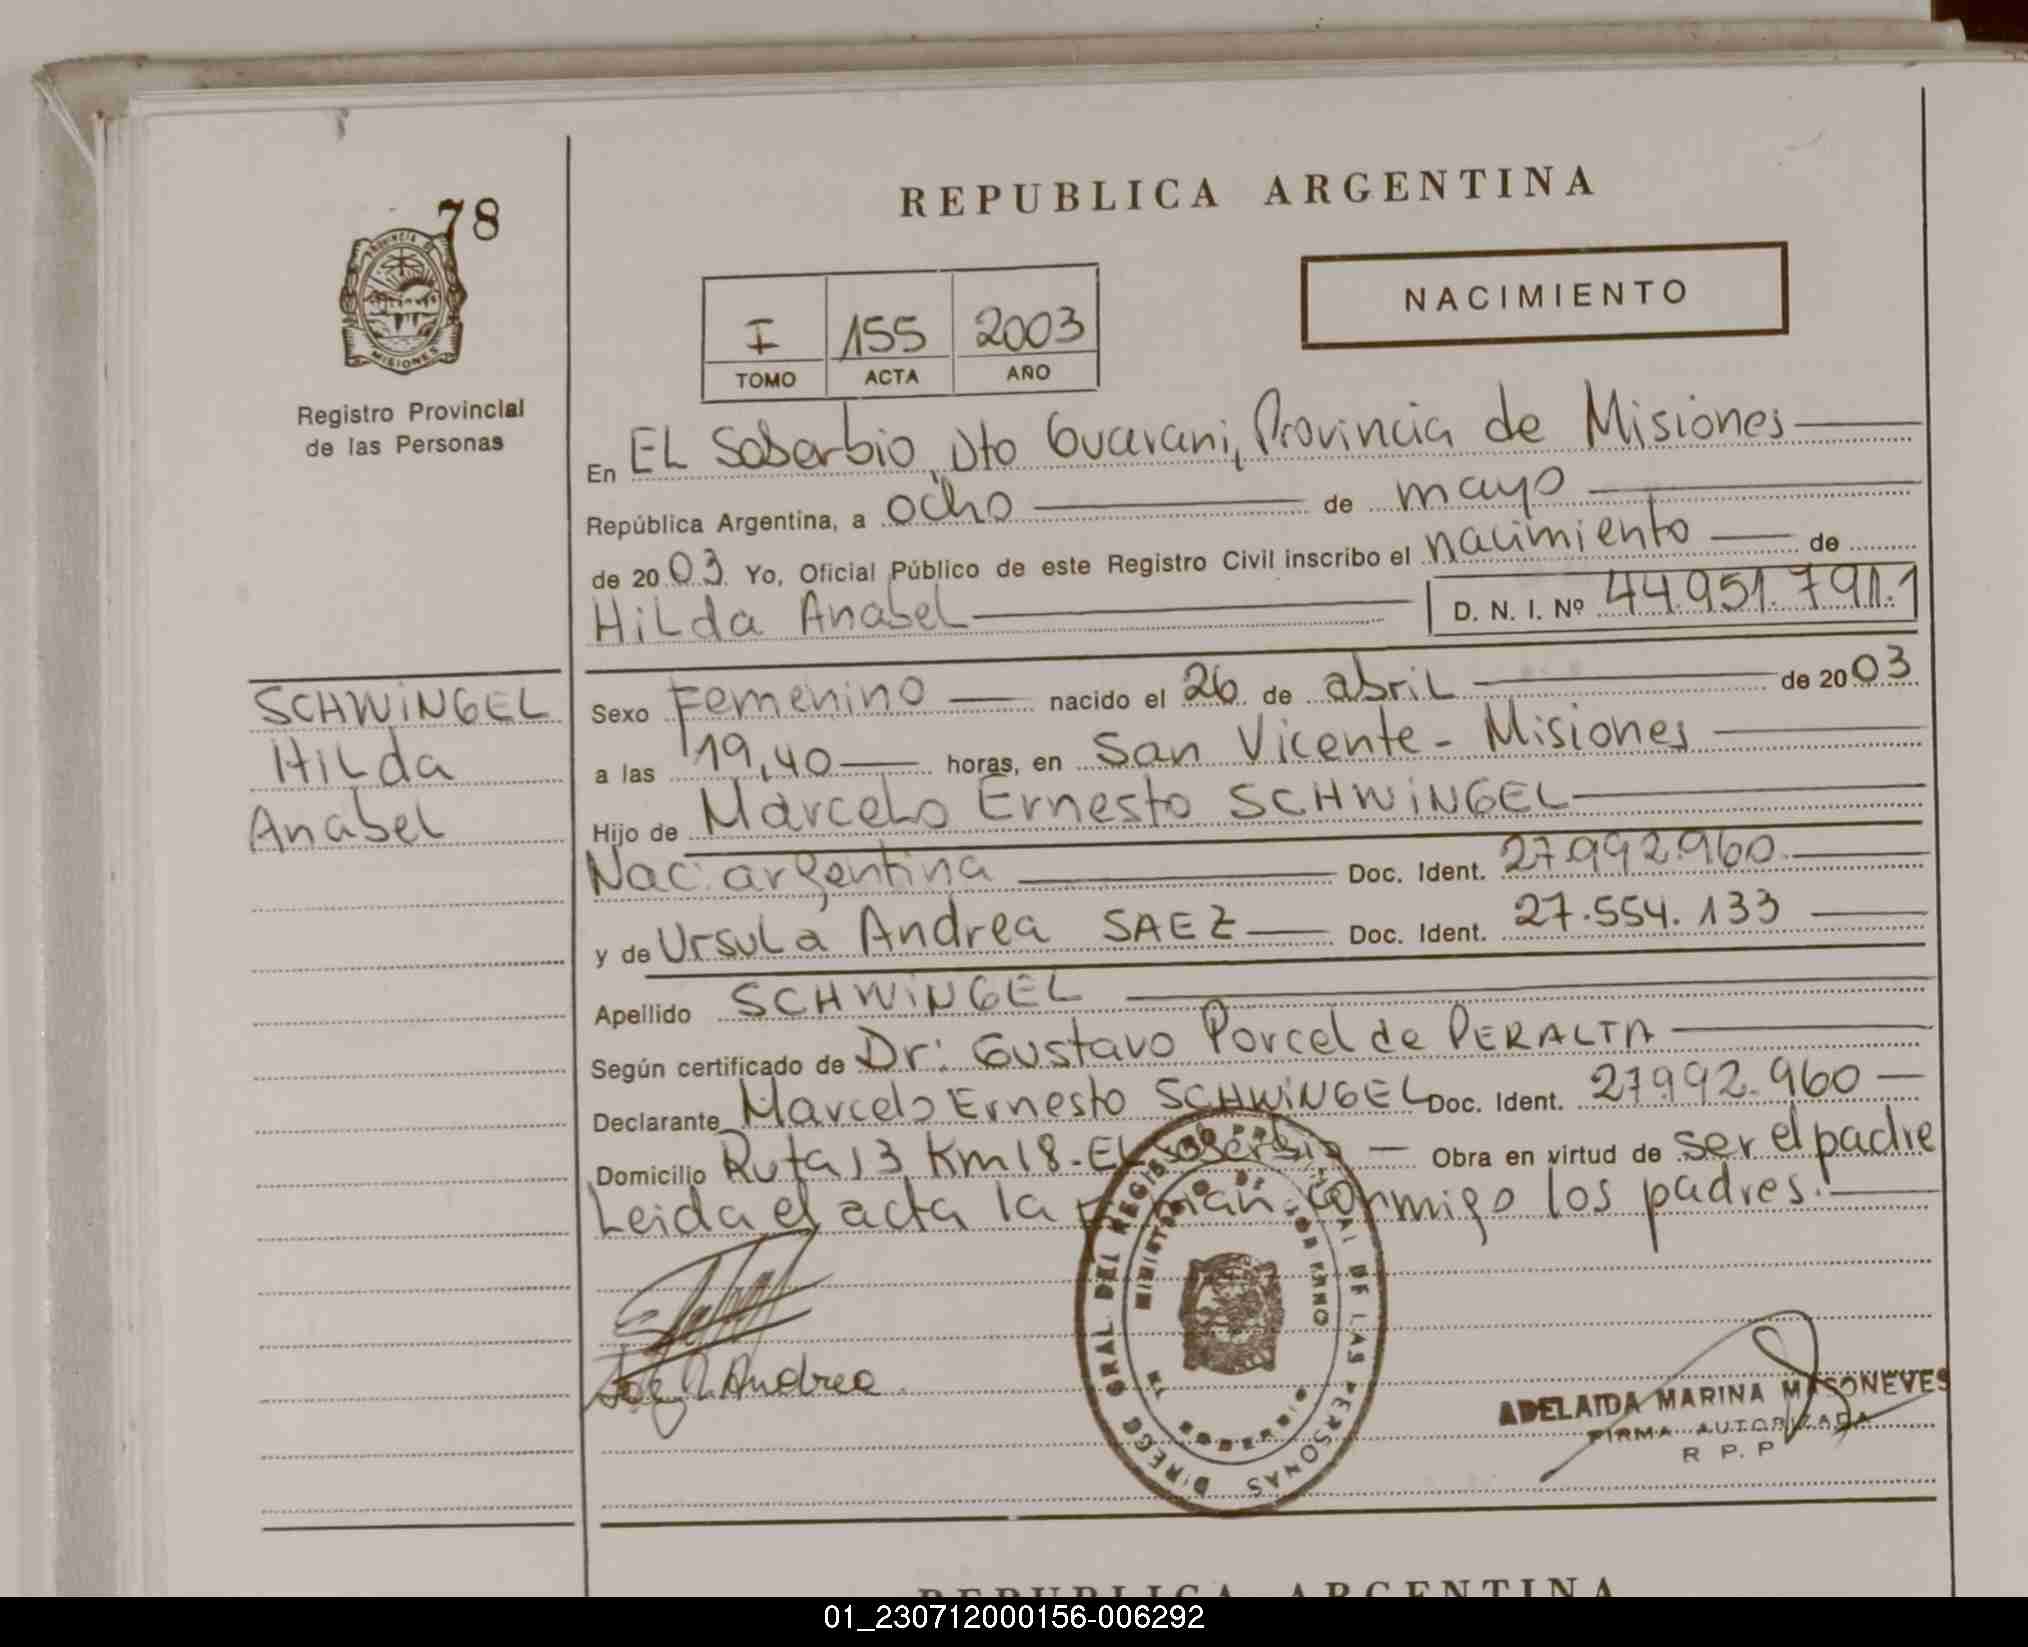 78
PROVINCIA DE
MISIONES
Registro Provincial
de las Personas
REPUBLICA ARGENTINA
NACIMIENTO
I 155 2003
TOMO ACTA AÑO
En EL Soberbio, Dto Guarani, Provincia de Misiones
República Argentina, a ocho de mayo
de 2003 Yo, Oficial Público de este Registro Civil inscribo el nacimiento de
Hilda Anabel D. N. I. Nº 44.951.791.1
SCHWINGEL
Hilda
Anabel
Sexo Femenino nacido el 26 de abril de 2003
a las 19,40 horas, en San Vicente - Misiones
Hijo de Marcelo Ernesto SCHWINGEL
Nac: argentina Doc. Ident. 27.992.960
y de Ursula Andrea SAEZ Doc. Ident. 27.554.133
Apellido SCHWINGEL
Según certificado de Dr: Gustavo Porcel de PERALTA
Declarante Marcelo Ernesto SCHWINGEL Doc. Ident. 27992.960
Domicilio Ruta 13 Km 18 - EL Soberbio Obra en virtud de ser el padre
Leida el acta la firman conmigo los padres.
Andrea
DIRECC GRAL DEL REGISTRO PROVINCIAL DE LAS PERSONAS
MINISTERIO DE GOBIERNO
ADELAIDA MARINA MASONEVES
FIRMA AUTORIZADA
R. P. P
REPUBLICA ARGENTINA
01_230712000156-006292